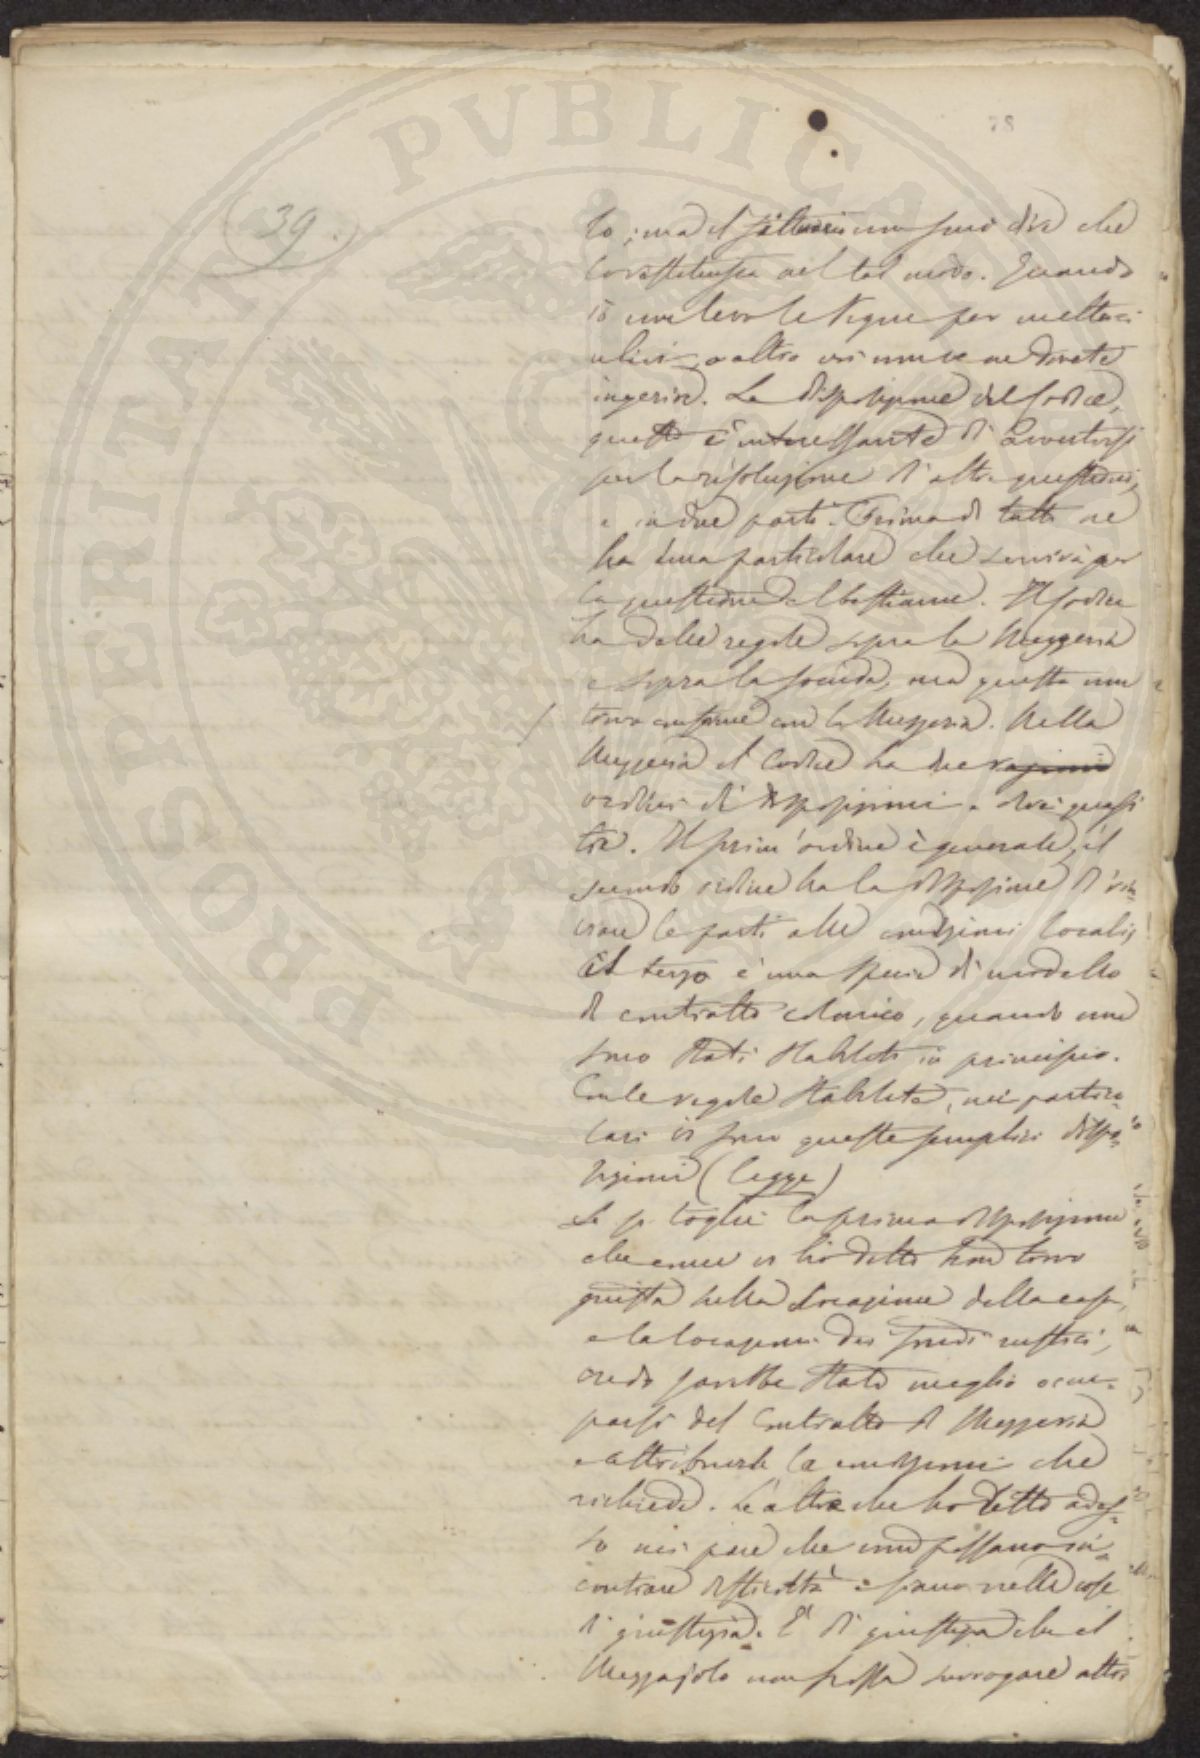 78
39.
to; ma il fittuario non può dire che
coltiva nel tal modo. Quando
io non levo le vigne per metterci
ulivi, o altro voi non ve ne dovete
ingerire. La disposizione del Codice,
questo è interessante di avvertirsi
per la risoluzione di altre questioni,
è in due parti. Prima di tutto ne
ha una particolare che servirà per
la questione del bestiame. Il Codice
ha delle regole sopra la Mezzeria
e sopra la soccida, ma questa non
trovo conforme con la Mezzeria. Nella
Mezzeria il Codice ha due ragioni
ordini di disposizioni e direi quasi
tre. Il prim'ordine è generale, il
secondo ordine ha la disposizione di
le parti alle condizioni locali;
il terzo è una specie di modello
di contratto colonico, quando non
sono stati stabiliti in principio.
Con le regole stabilite, nei partico-
lari vi sono queste semplici dispo-
sizioni (legge)
Se si toglie la prima disposizione
che come vi ho detto non trovo
giusta nella locazione delle case,
e la locazione dei fondi rustici,
credo sarebbe stato meglio occu-
parsi del Contratto di Mezzeria
e attribuirle le condizioni che
richiede. Le altre che ho detto ades-
so mi pare che non possano in-
contrare difficoltà e siano nelle cose
di giustizia. È di giustizia che il
Mezzajolo non possa surrogare altri